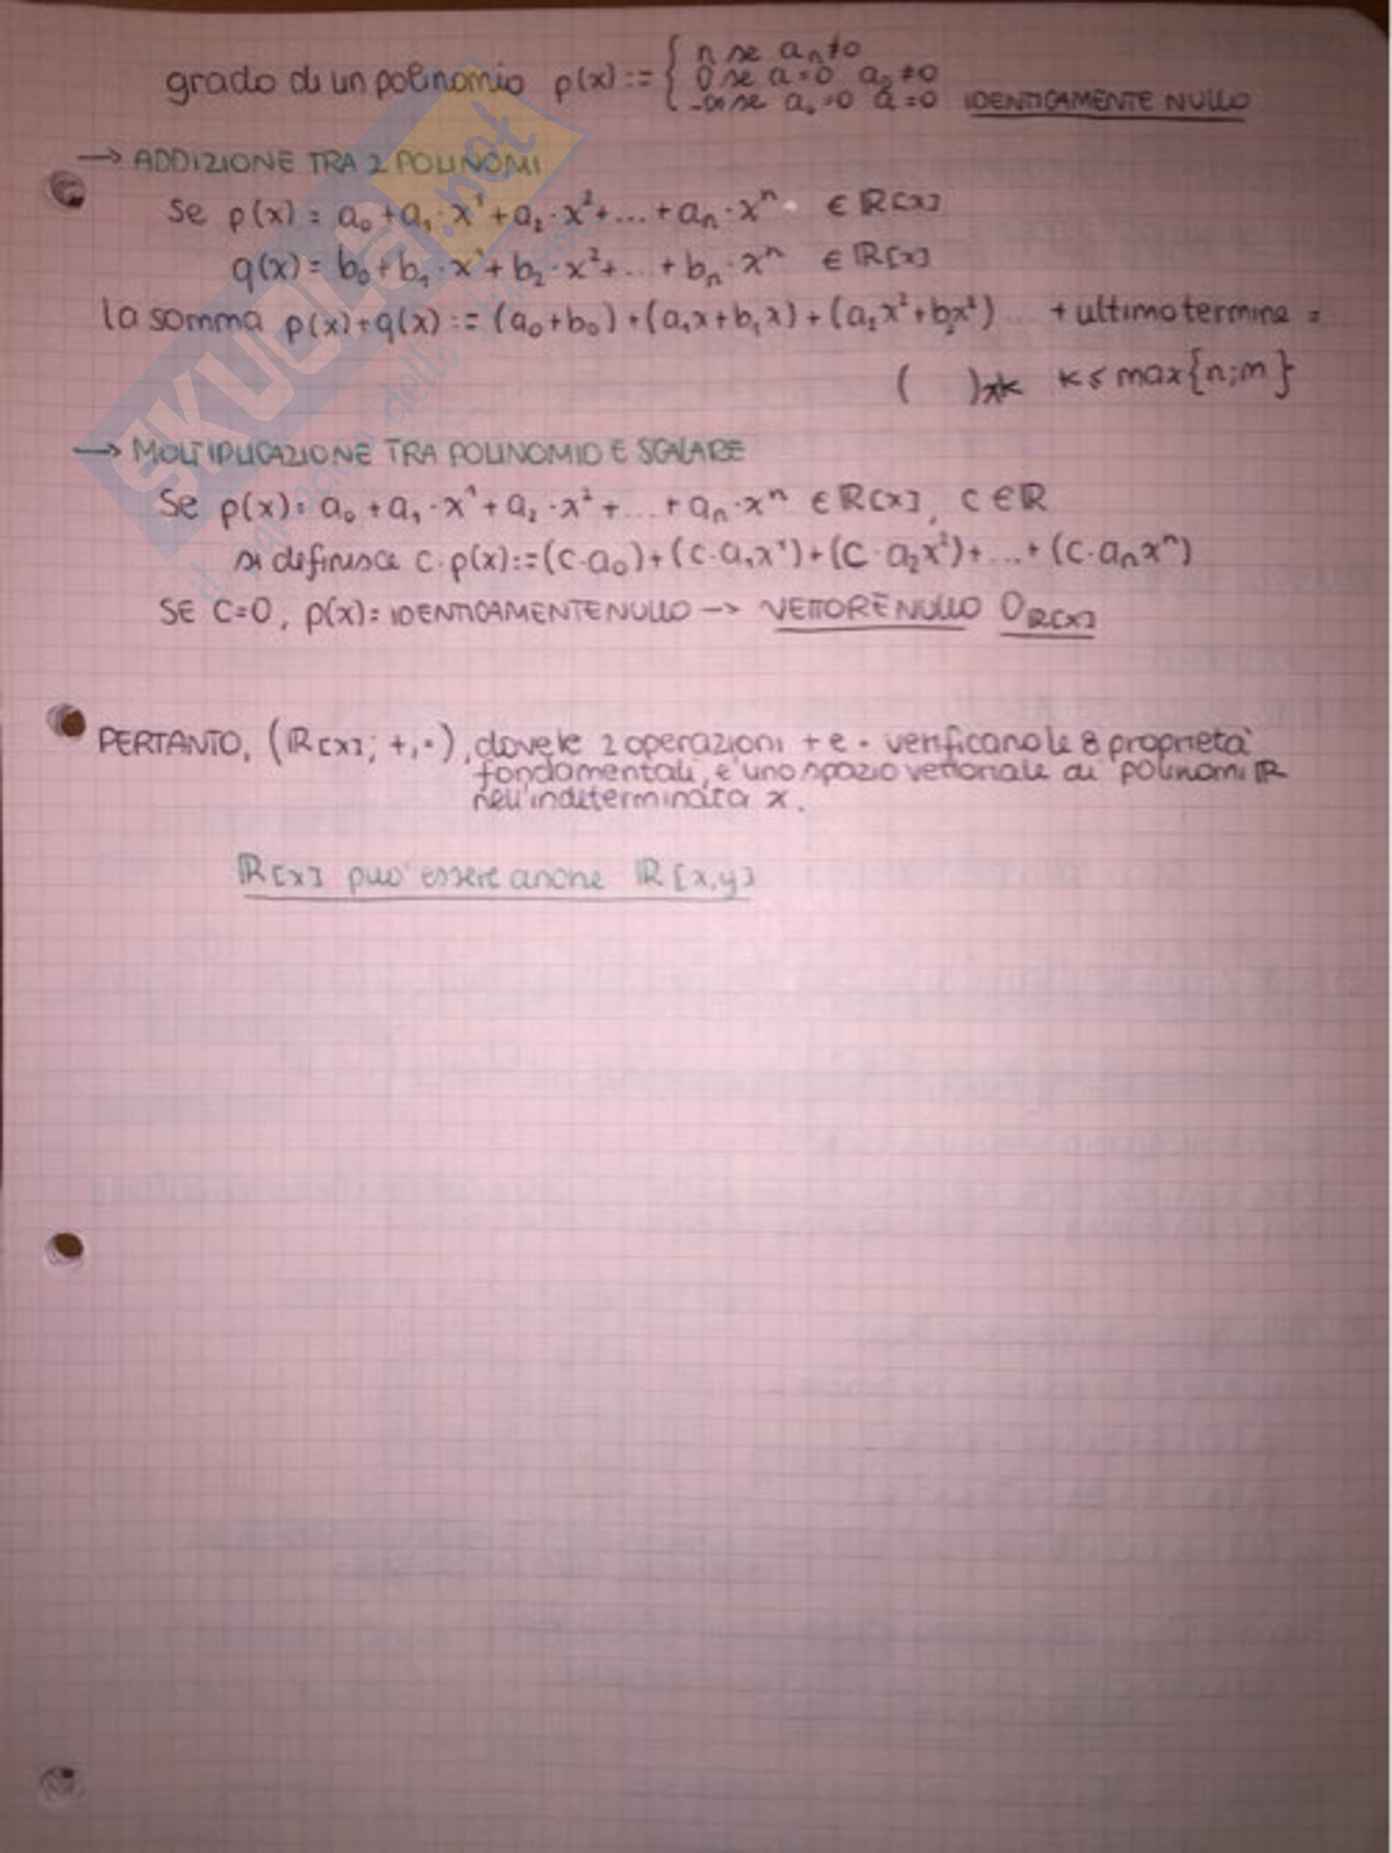 grado di un polinomio p(x):= { n se aₙ≠0
0 se a=0 a₀≠0
-∞ se a₀=0 a=0 IDENTICAMENTE NULLO
→ ADDIZIONE TRA 2 POLINOMI
Se p(x)= a₀+a₁·x¹+a₂·x²+...+aₙ·xⁿ ∈ ℝ[x]
q(x)= b₀+b₁·x¹+b₂·x²+...+bₙ·xⁿ ∈ ℝ[x]
la somma p(x)+q(x):= (a₀+b₀)+(a₁x+b₁x)+(a₂x²+b₂x²) ... + ultimo termine =
( )xk k≤max{n;m}
→ MOLTIPLICAZIONE TRA POLINOMIO E SCALARE
Se p(x)= a₀+a₁·x¹+a₂·x²+...+aₙ·xⁿ ∈ ℝ[x], c∈ℝ
si definisce c·p(x):=(c·a₀)+(c·a₁x¹)+(c·a₂x²)+...+(c·aₙxⁿ)
SE C=0, p(x)= IDENTICAMENTE NULLO → VETTORE NULLO 0ℝ[x]
PERTANTO, (ℝ[x]; +,·), dove le 2 operazioni + e · verificano le 8 proprietà
fondamentali, è uno spazio vettoriale di polinomi ℝ
nell'indeterminata x.
ℝ[x] può essere anche ℝ[x,y]
SKUOLA.net